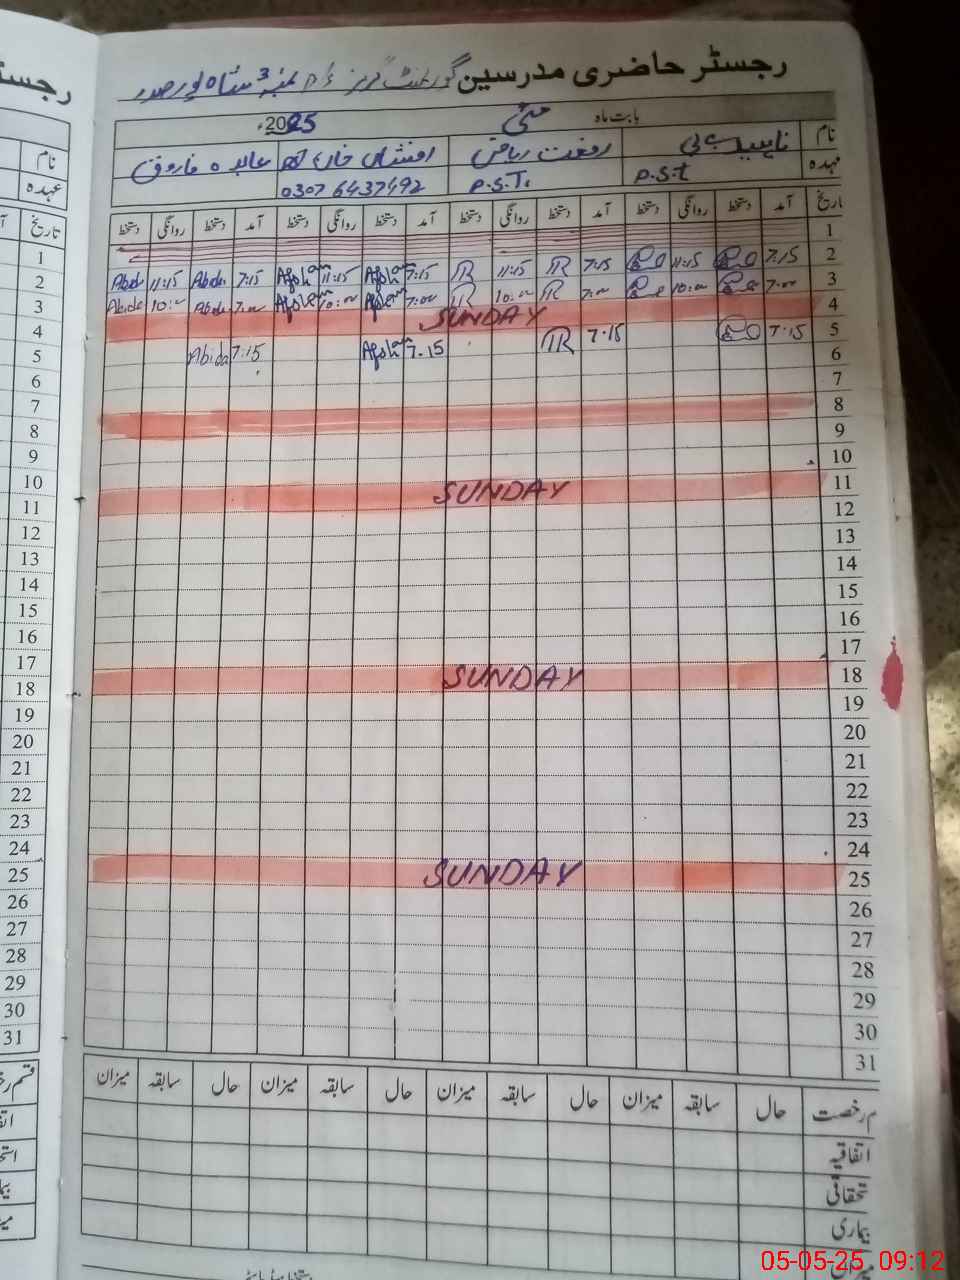 رجسٹر حاضری مدرسین گورنمنٹ گرلز P/S نمبر 3 شاہ پور صدر
بابت ماہ مئی 2025ء
نام ناہید بی بی رفعت ریاض افشاں عابدہ فاروق
عہدہ P.S.t P.S.T. 0307 6437492
تاریخ آمد دستخط روانگی دستخط آمد دستخط روانگی دستخط آمد دستخط روانگی دستخط آمد دستخط روانگی دستخط
1
2 7:15 11:15 7:15 TR 11:15 TR 7:15 Afshan 11:15 Afshan 7:15 Abida 11:15 Abida
3 7:00 10:00 7:00 TR 10:00 TR 7:00 Afshan 10:00 Afshan 7:00 Abida 10:00 Abida
4 SUNDAY
5 7:15 7:15 TR 7.15 Afshan 7:15 Abida
6
7
8
9
10
11 SUNDAY
12
13
14
15
16
17
18 SUNDAY
19
20
21
22
23
24
25 SUNDAY
26
27
28
29
30
31
حال سابقہ میزان حال سابقہ میزان حال سابقہ میزان حال سابقہ میزان
اتفاقیہ
بیماری
میزان
رجسٹ
نام
عہدہ
تاریخ
1
2
3
4
5
6
7
8
9
10
11
12
13
14
15
16
17
18
19
20
21
22
23
24
25
26
27
28
29
30
31
05-05-25 09:12